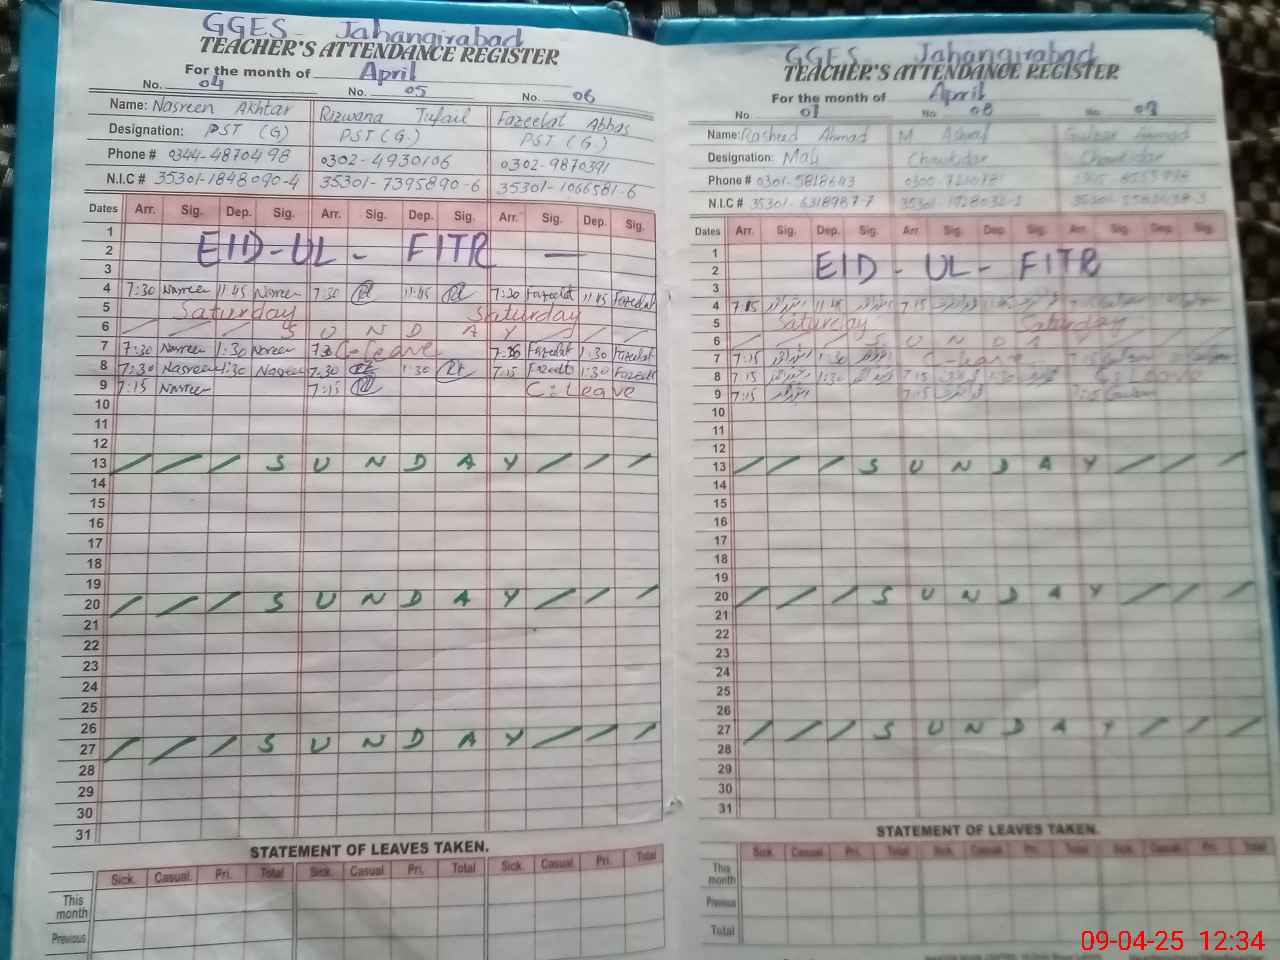 GGES Jahangirabad
TEACHER'S ATTENDANCE REGISTER
For the month of April
No. 04 No. 05 No. 06
Name: Nasreen Akhtar Rizwana Tufail Fazeelat Abbas
Designation: PST (G) PST (G.) PST (G.)
Phone # 0344-4870498 0302-4930106 0302-9870391
N.I.C # 35301-1848090-4 35301-7395890-6 35301-1066581-6
Dates Arr. Sig. Dep. Sig. Arr. Sig. Dep. Sig. Arr. Sig. Dep. Sig.
1
2 EID-UL- FITR —
3
4 7:30 Nasreen 11:45 Nasreen 7:30 11:45 7:30 Fazeelat 11:45 Fazeelat
5 Saturday Saturday
6 S U N D A Y
7 7:30 Nasreen 1:30 Nasreen C-leave Fazeelat 1:30 Fazeelat
8 7:30 Nasreen 1:30 Nasreen 7:30 1:30 7:15 Fazeelat 1:30 Fazeelat
9 7:15 Nasreen 7:15 C: Leave
10
11
12
13 S U N D A Y
14
15
16
17
18
19
20 S U N D A Y
21
22
23
24
25
26
27 S U N D A Y
28
29
30
31
STATEMENT OF LEAVES TAKEN.
Sick. Casual. Pri. Total Sick. Casual Pri. Total Sick. Casual. Pri. Total
This month
Previous
GGES Jahangirabad
TEACHER'S ATTENDANCE REGISTER
For the month of April
No 07 No 08 No. 09
Name: Rasheed Ahmad M Ashraf Ahmad
Designation: Mali Chowkidar Chowkidar
Phone # 0301-5818643
N.I.C # 35301-6318987-7
Dates Arr. Sig. Dep. Sig. Arr Sig. Dep. Sig. Arr. Sig. Dep. Sig.
1
2 EID - UL - FITR
3
4 7:15 11:45 7:15
5 Saturday Saturday
6 S U N D A Y
7 7:15 1:30 C-leave
8 7:15 1:30 7:15 C: Leave
9 7:15 7:15
10
11
12
13 S U N D A Y
14
15
16
17
18
19
20 S U N D A Y
21
22
23
24
25
26
27 S U N D A Y
28
29
30
31
STATEMENT OF LEAVES TAKEN.
Sick. Casual. Pri. Total Sick. Casual. Pri. Total Sick. Casual. Pri. Total
This month
Previous
Total
09-04-25 12:34